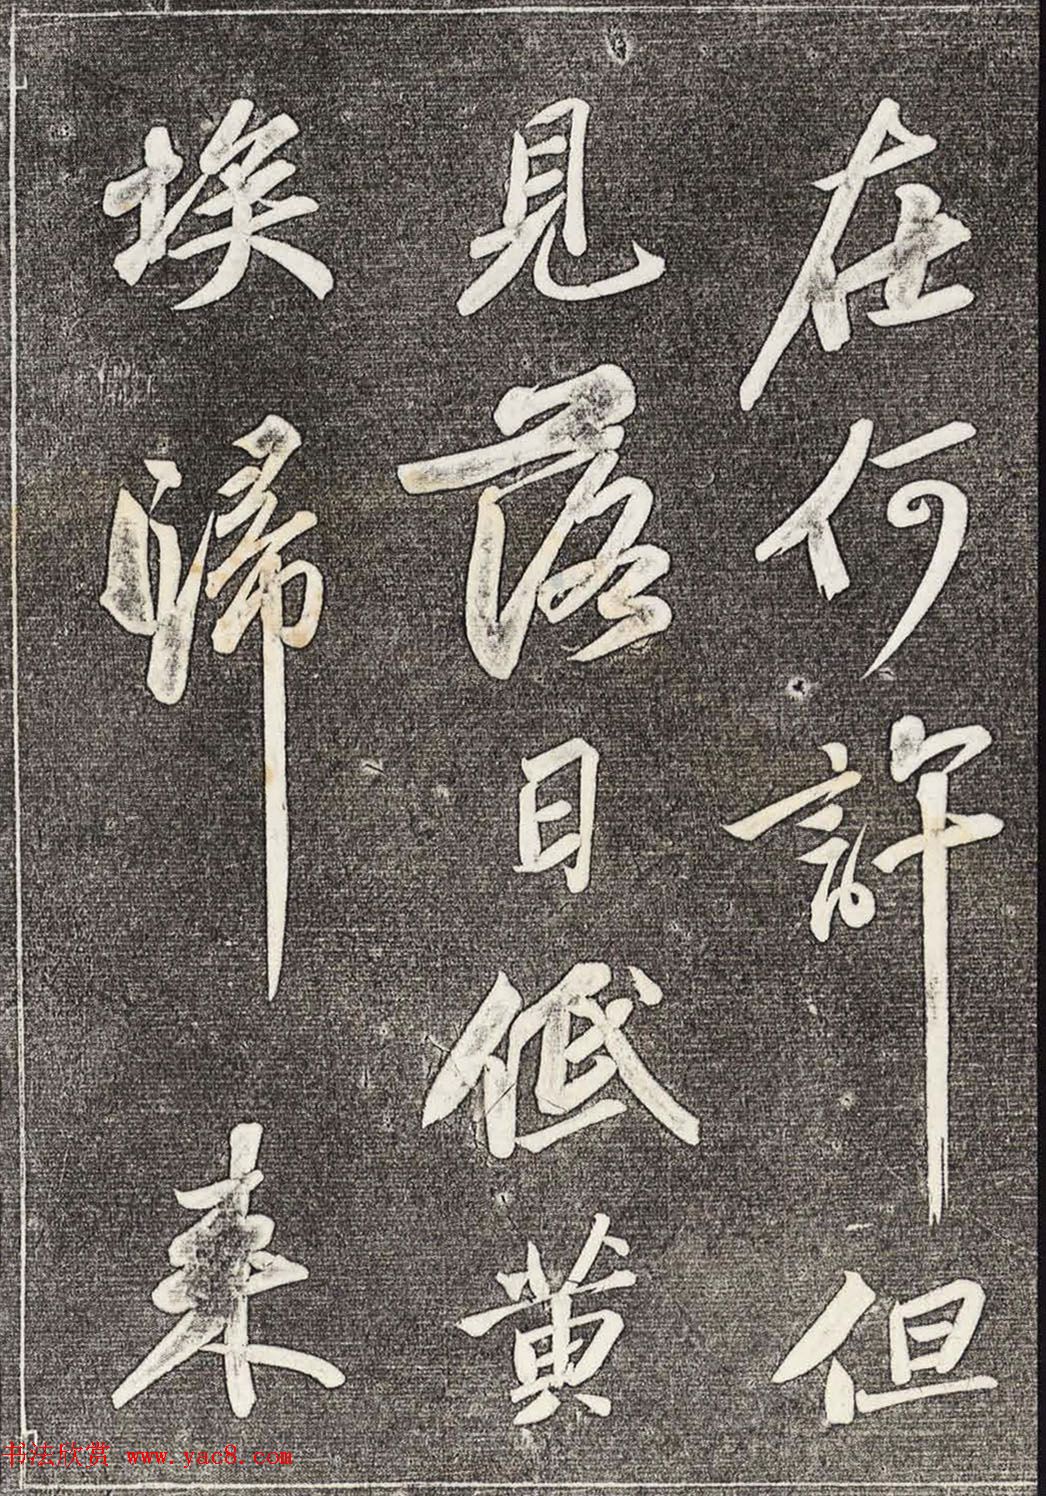 在何許但
見落日低黃
埃歸來
书法欣赏 www.yac8.com